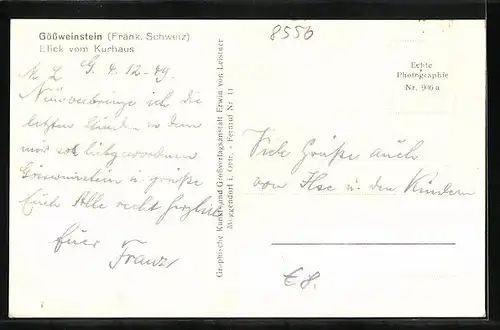 Gößweinstein (Fränk. Schweiz)
Blick vom Kurhaus
8556
M L G. 4. 12. 49.
Nun verbringe ich die
letzten Stunden in dem
mir so liebgewordenen
Gössweinstein u. grüße
Euch Alle recht herzlich
Euer
Franz
Graphische Kunst- und Großverlagsanstalt Erwin von Leistner
Muggendorf i. Ofr. - Fernruf Nr. 11
Echte
Photographie
Nr. 906 a
Viele Grüße auch
von Ilse u. den Kindern
€8.